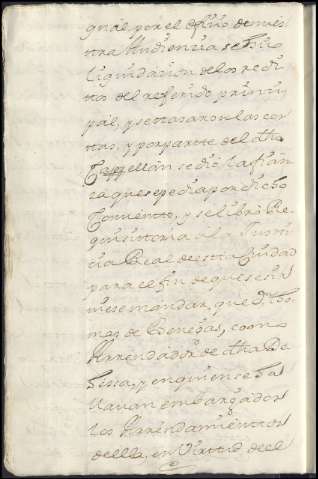 qual por el ofiçio de nues
tra Audiençia se hiço
liquidacion de los redi
ttos del referido prinçi
pal, y se tasaron las cos
tas, y por partte del dho
Cappellan se dio la fian
ça que se pedia por dicho
Conventto, y se libro Re
quisittoria a la Justi
cia Real de esta Ciudad
para el fin de que se sir
viese mandar, que Dn Tho
mas de Venegas, como
Arrendador de dha De
hessa, y en quien se ha
llavan embargados
los Arrendamienttos
de ella, en virttud de el